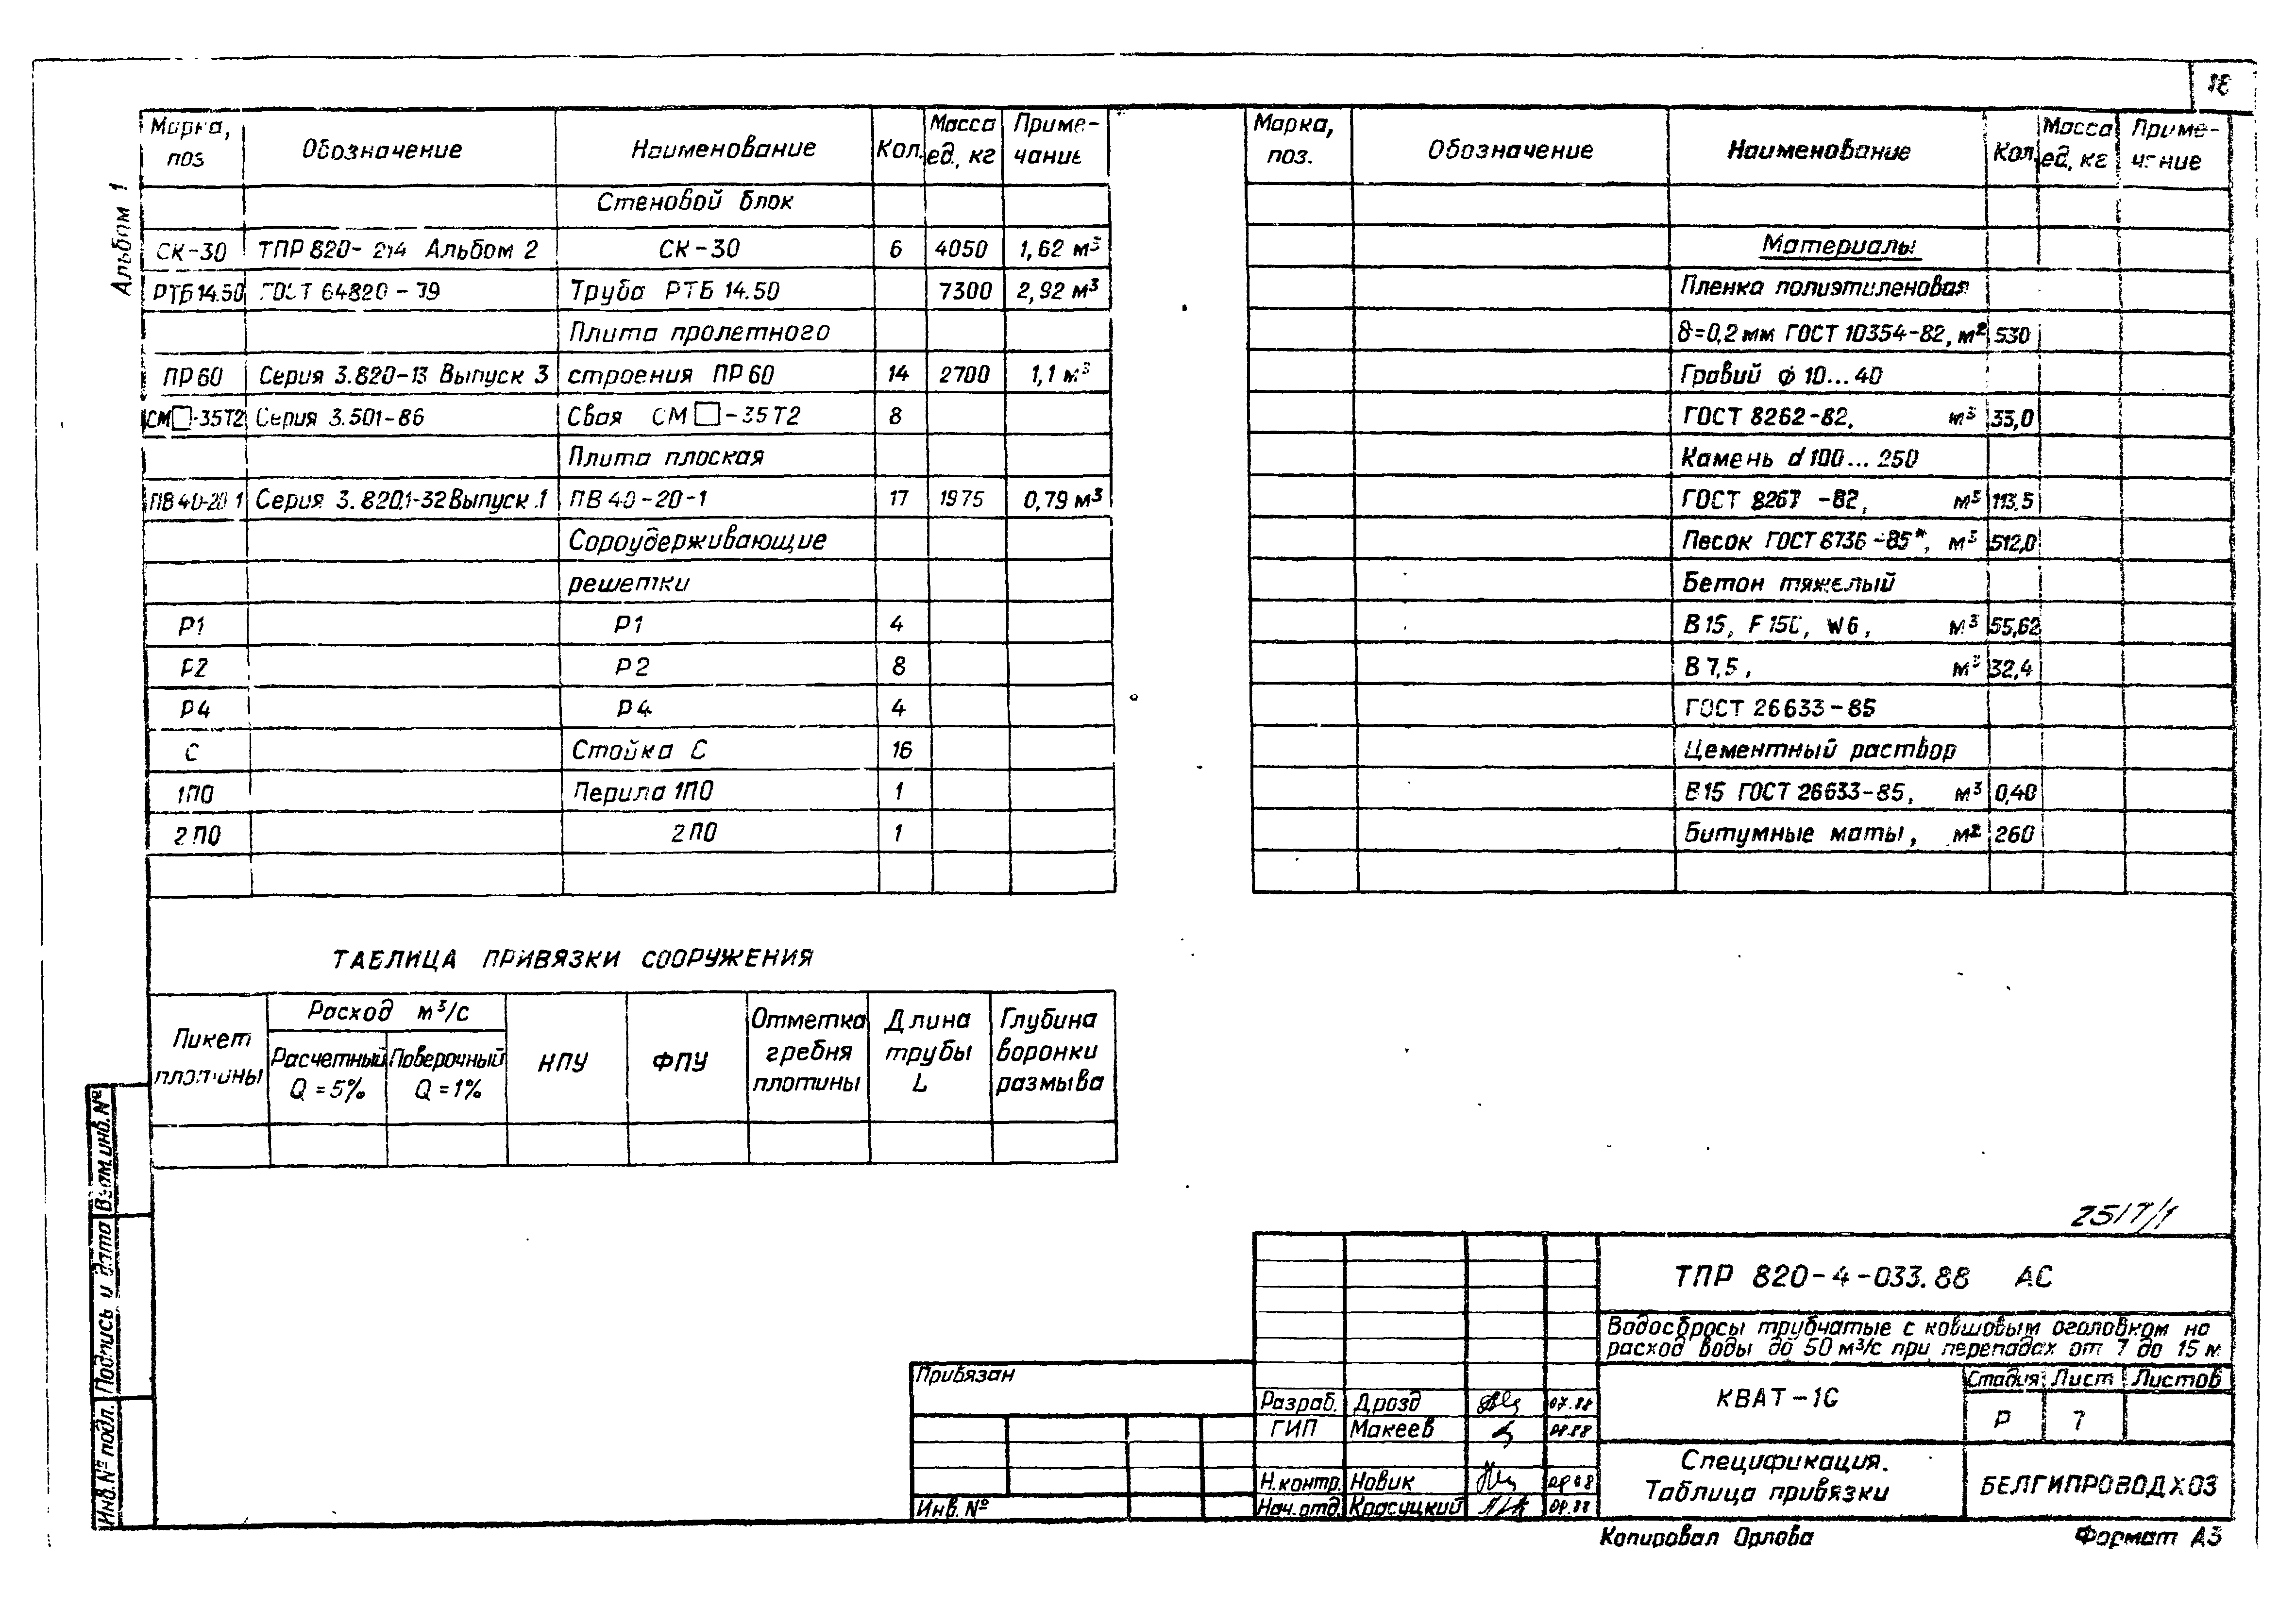 Альбом 1
Марка, поз Обозначение Наименование Кол. Масса ед., кг Приме-чание
Стеновой блок
СК-30 ТПР 820- Альбом 2 СК-30 6 4050 1,62 м³
РТБ 14.50 ГОСТ 64820 - Труба РТБ 14.50 7300 2,92 м³
Плита пролетного
ПР 60 Серия 3.820-13 Выпуск 3 строения ПР 60 14 2700 1,1 м³
СМ□-35Т2 Серия 3.501-86 Свая СМ□-35Т2 8
Плита плоская
ПВ 40-20 1 Серия 3.820.1-32 Выпуск 1 ПВ 40-20-1 17 1975 0,79 м³
Сороудерживающие
решетки
Р1 Р1 4
Р2 Р2 8
Р4 Р4 4
С Стойка С 16
1ПО Перила 1ПО 1
2ПО 2ПО 1
Марка, поз. Обозначение Наименование Кол. Масса ед. кг Приме-чание
Материалы
Пленка полиэтиленовая
δ=0,2 мм ГОСТ 10354-82, м² 530
Гравий ф 10...40
ГОСТ 8262-82, м³ 33,0
Камень d 100... 250
ГОСТ 8267 -82, м³ 113,5
Песок ГОСТ 8736-85*, м³ 512,0
Бетон тяжелый
В15, F 150, W6, м³ 55,62
В 7,5, м³ 32,4
ГОСТ 26633-85
Цементный раствор
В15 ГОСТ 26633-85, м³ 0,40
Битумные маты, м² 260
ТАБЛИЦА ПРИВЯЗКИ СООРУЖЕНИЯ
Пикет плотины
Расход м³/с
Расчетный Q=5%
Поверочный Q=1%
НПУ
ФПУ
Отметка гребня плотины
Длина трубы L
Глубина воронки размыва
Взам.инв.№
Подпись и дата
Инв.№ подл.
2517/1
ТПР 820-4-033.88 АС
Водосбросы трубчатые с ковшовым оголовком на
расход воды до 50 м³/с при перепадах от 7 до 15 м
Привязан
Инв. №
Разраб. Дрозд 07.88
ГИП Макеев
Н.контр. Новик
Нач.отд. Красуцкий
КВАТ-1С
Стадия Лист Листов
Р 7
Спецификация.
Таблица привязки
БЕЛГИПРОВОДХОЗ
Копировал Орлова
Формат А3